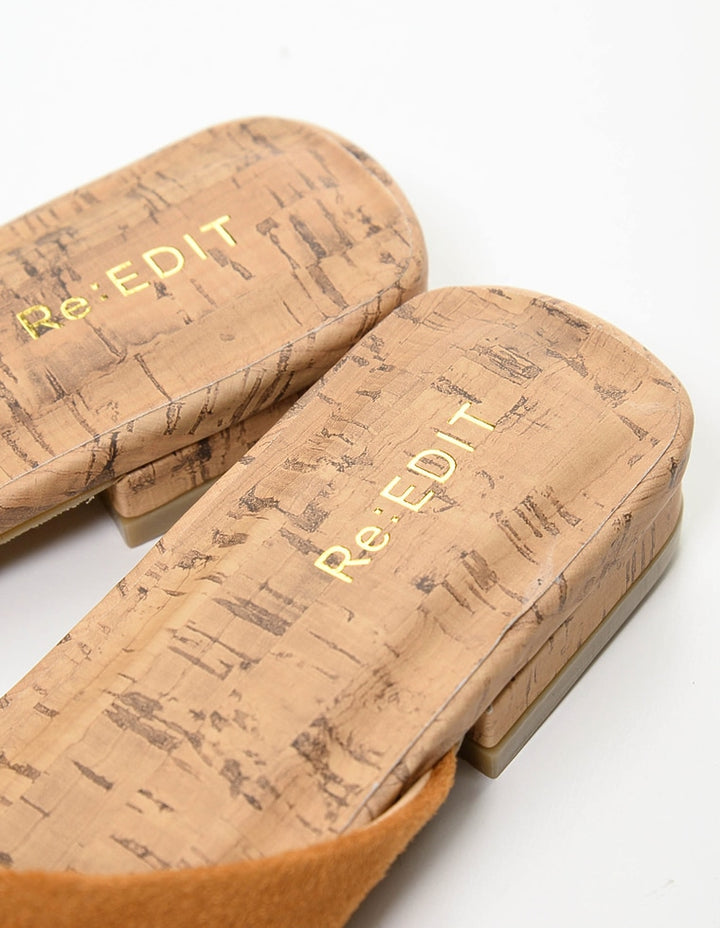 Re:EDIT
Re:EDIT